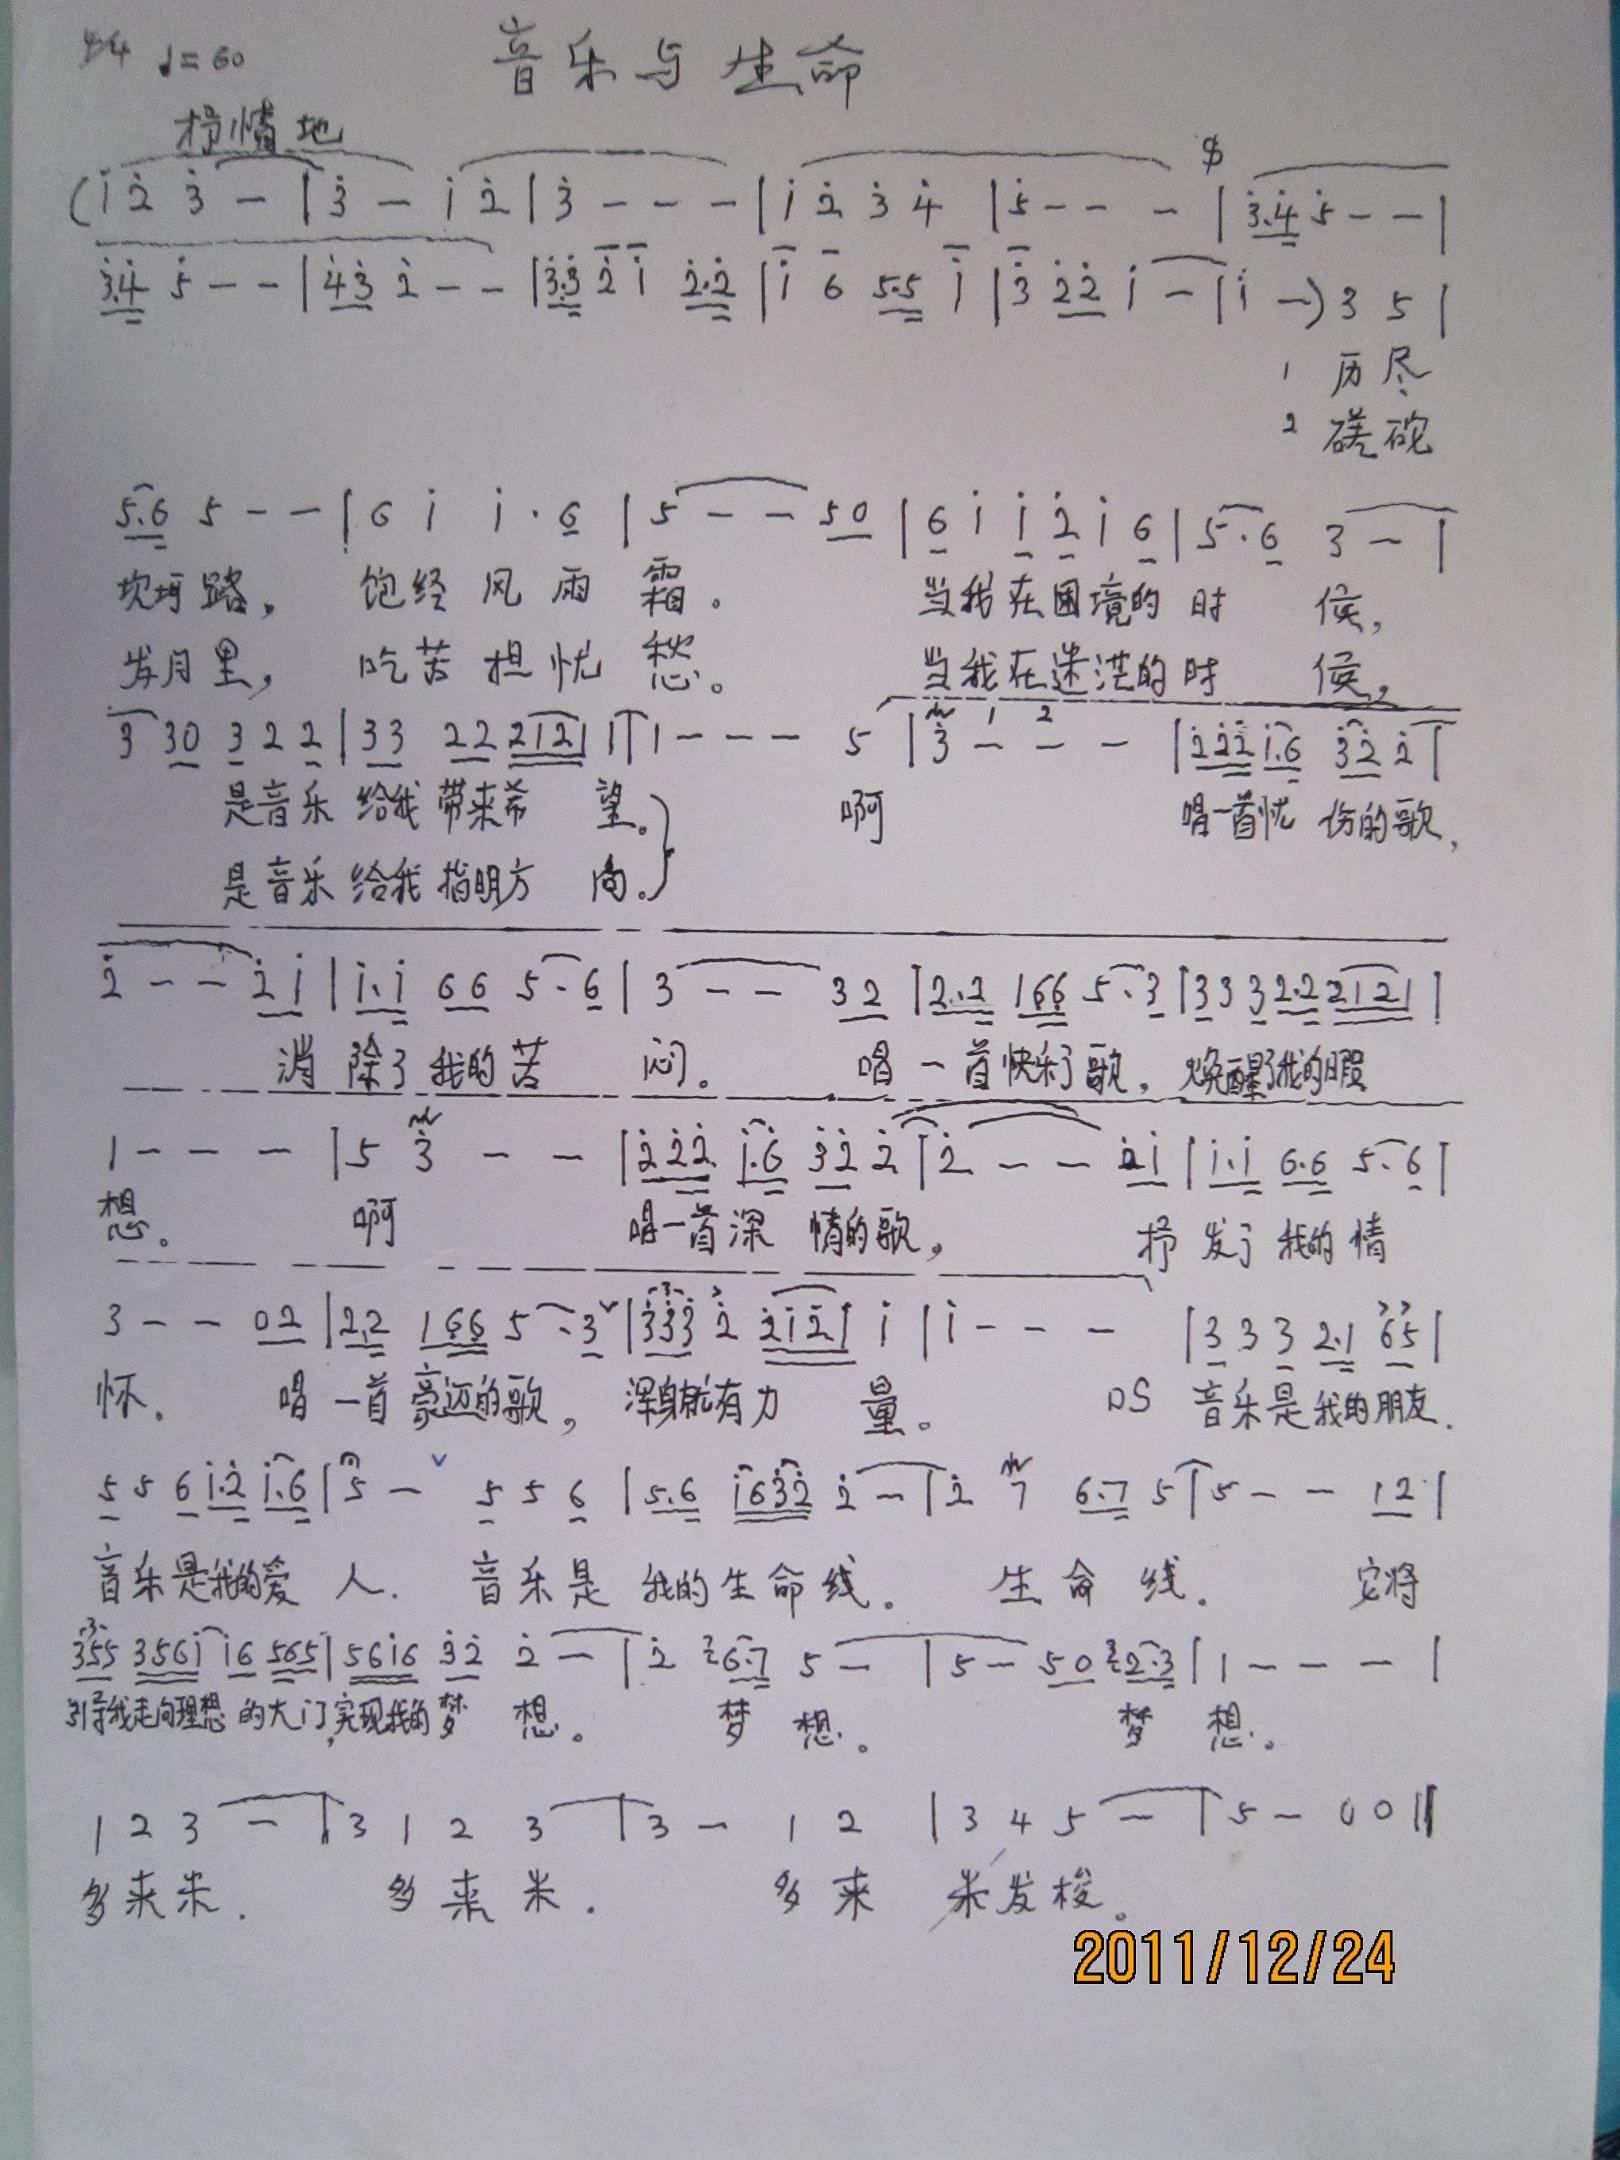 4/4 ♩=60 音乐与生命
抒情地
(i̇ 2̇ 3̇ — | 3̇ — i̇ 2̇ | 3̇ - - - | i̇ 2̇ 3̇ 4̇ | 5̇ - - - | 3̇.4̇ 5̇ - - |
3̇.4̇ 5̇ - - | 4̇3̇ 2̇ - - | 3̇.3̇ 2̇ i̇ 2̇.2̇ | i̇ 6 5.5 i̇ | 3̇ 2̇2̇ i̇ - | i̇ -) 3 5 |
1 历尽
2 磋砣
5.6 5 - - | 6 i̇ i̇ . 6 | 5 - - 5 0 | 6 i̇ i̇ 2̇ i̇ 6 | 5 . 6 3 - |
坎坷路， 饱经风雨霜。 当我在困境的时候，
岁月里， 吃苦担忧愁。 当我在迷茫的时候，
3 30 3 2 2 | 33 22 2121 1 | 1 - - - 5 | 3̇ - - - | 2̇2̇2̇ i̇.6 3̇2̇ 2̇ |
是音乐给我带来希望。 啊 唱一首忧伤的歌，
是音乐给我指明方向。
2̇ - - 2̇ i̇ | i̇.i̇ 66 5 . 6 | 3 - - 3 2 | 2.2 166 5 . 3 | 3 3 3 2.2 2121 |
消除了我的苦闷。 唱一首快乐了歌，焕醒了我的暇
1 - - - | 5 3̇ - - | 2̇2̇2̇ i̇.6 3̇2̇ 2̇ | 2̇ - - 2̇i̇ | i̇.i̇ 6.6 5 . 6 |
想。 啊 唱一首深情的歌， 抒发了我的情
3 - - 0 2 | 2.2 166 5 . 3 | 3̇3̇3̇ 2̇ 2̇i̇2̇ i̇ i̇ | i̇ - - - | 3 3 3 2.1 65 |
怀。 唱一首豪迈的歌，浑身就有力量。 DS 音乐是我的朋友.
5 5 6 i̇.2̇ i̇.6 | 5 - 5 5 6 | 5.6 i̇63̇2̇ 2̇ - | 2̇ 7 6.7 5 | 5 - - 1 2 |
音乐是我的爱人. 音乐是我的生命线。 生命线. 它将
355 356i̇ i̇6 565 | 56i̇6 3̇2̇ 2̇ - | 2̇ 6.7 5 - | 5 - 5 0 2.3 | 1 - - - |
引导我走向理想的大门，实现我的梦想。 梦想。 梦想。
1 2 3 - | 3 1 2 3 | 3 - 1 2 | 3 4 5 - | 5 - 0 0 ||
多来米. 多来米. 多来米发梭。
2011/12/24